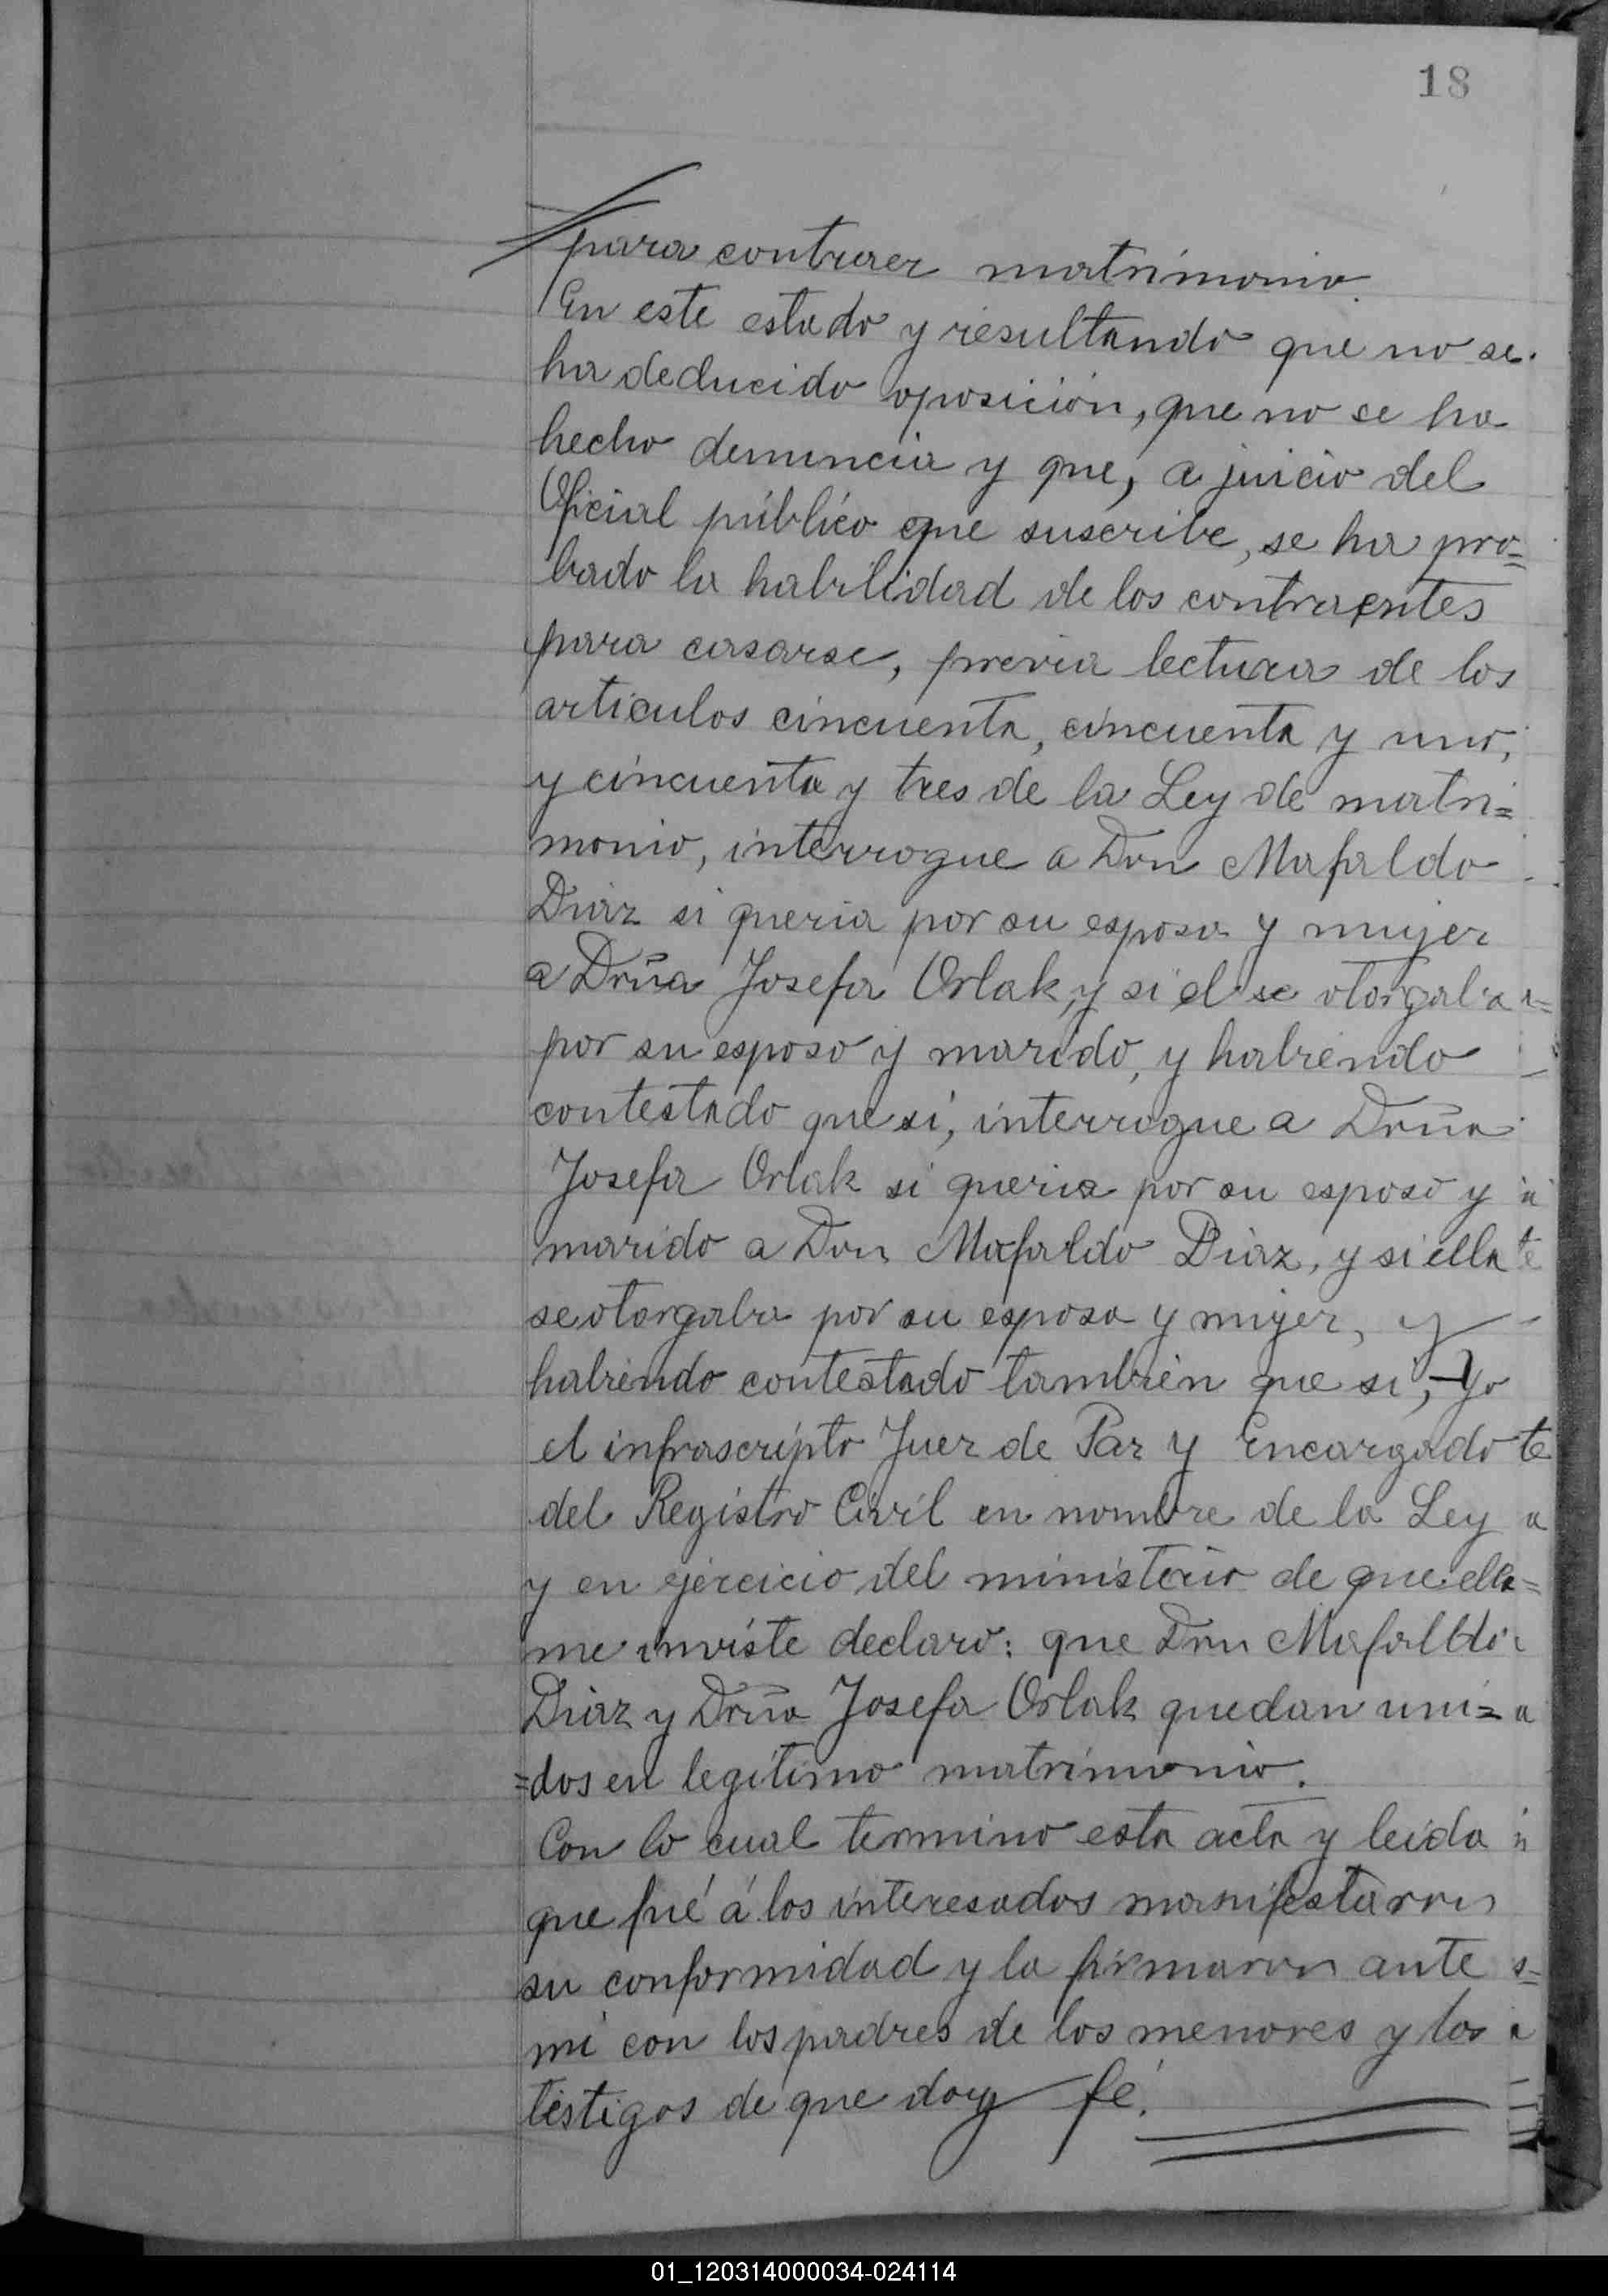 18
para contraer matrimonio.
En este estado y resultando que no se
ha deducido oposición, que no se ha
hecho denuncia y que, a juicio del
Oficial público que suscribe, se ha pro=
bado la habilidad de los contraentes
para casarse, previa lectura de los
articulos cincuenta, cincuenta y uno,
y cincuenta y tres de la Ley de matri=
monio, interrogue a Don Mafaldo
Diaz si queria por su esposa y mujer
a Doña Josefa Orlak, y si el se otorgaba
por su esposo y marido, y habiendo
contestado que si, interrogue a Doña
Josefa Orlak si queria por su esposo y
marido a Don Mafaldo Diaz, y si ella
se otorgaba por su esposa y mujer, y
habiendo contestado tambien que si, Yo
el infrascripto Juez de Paz y Encargado
del Registro Civil en nombre de la Ley
y en ejercicio del ministerio de que ella
me inviste declaro: que Don Mafaldo
Diaz y Doña Josefa Orlak quedan uni=
=dos en legitimo matrimonio.
Con lo cual termino esta acta y leida
que fué á los interesados manifestaron
su conformidad y la firmaron ante
mi con los padres de los menores y los
testigos de que doy fé.
01_120314000034-024114